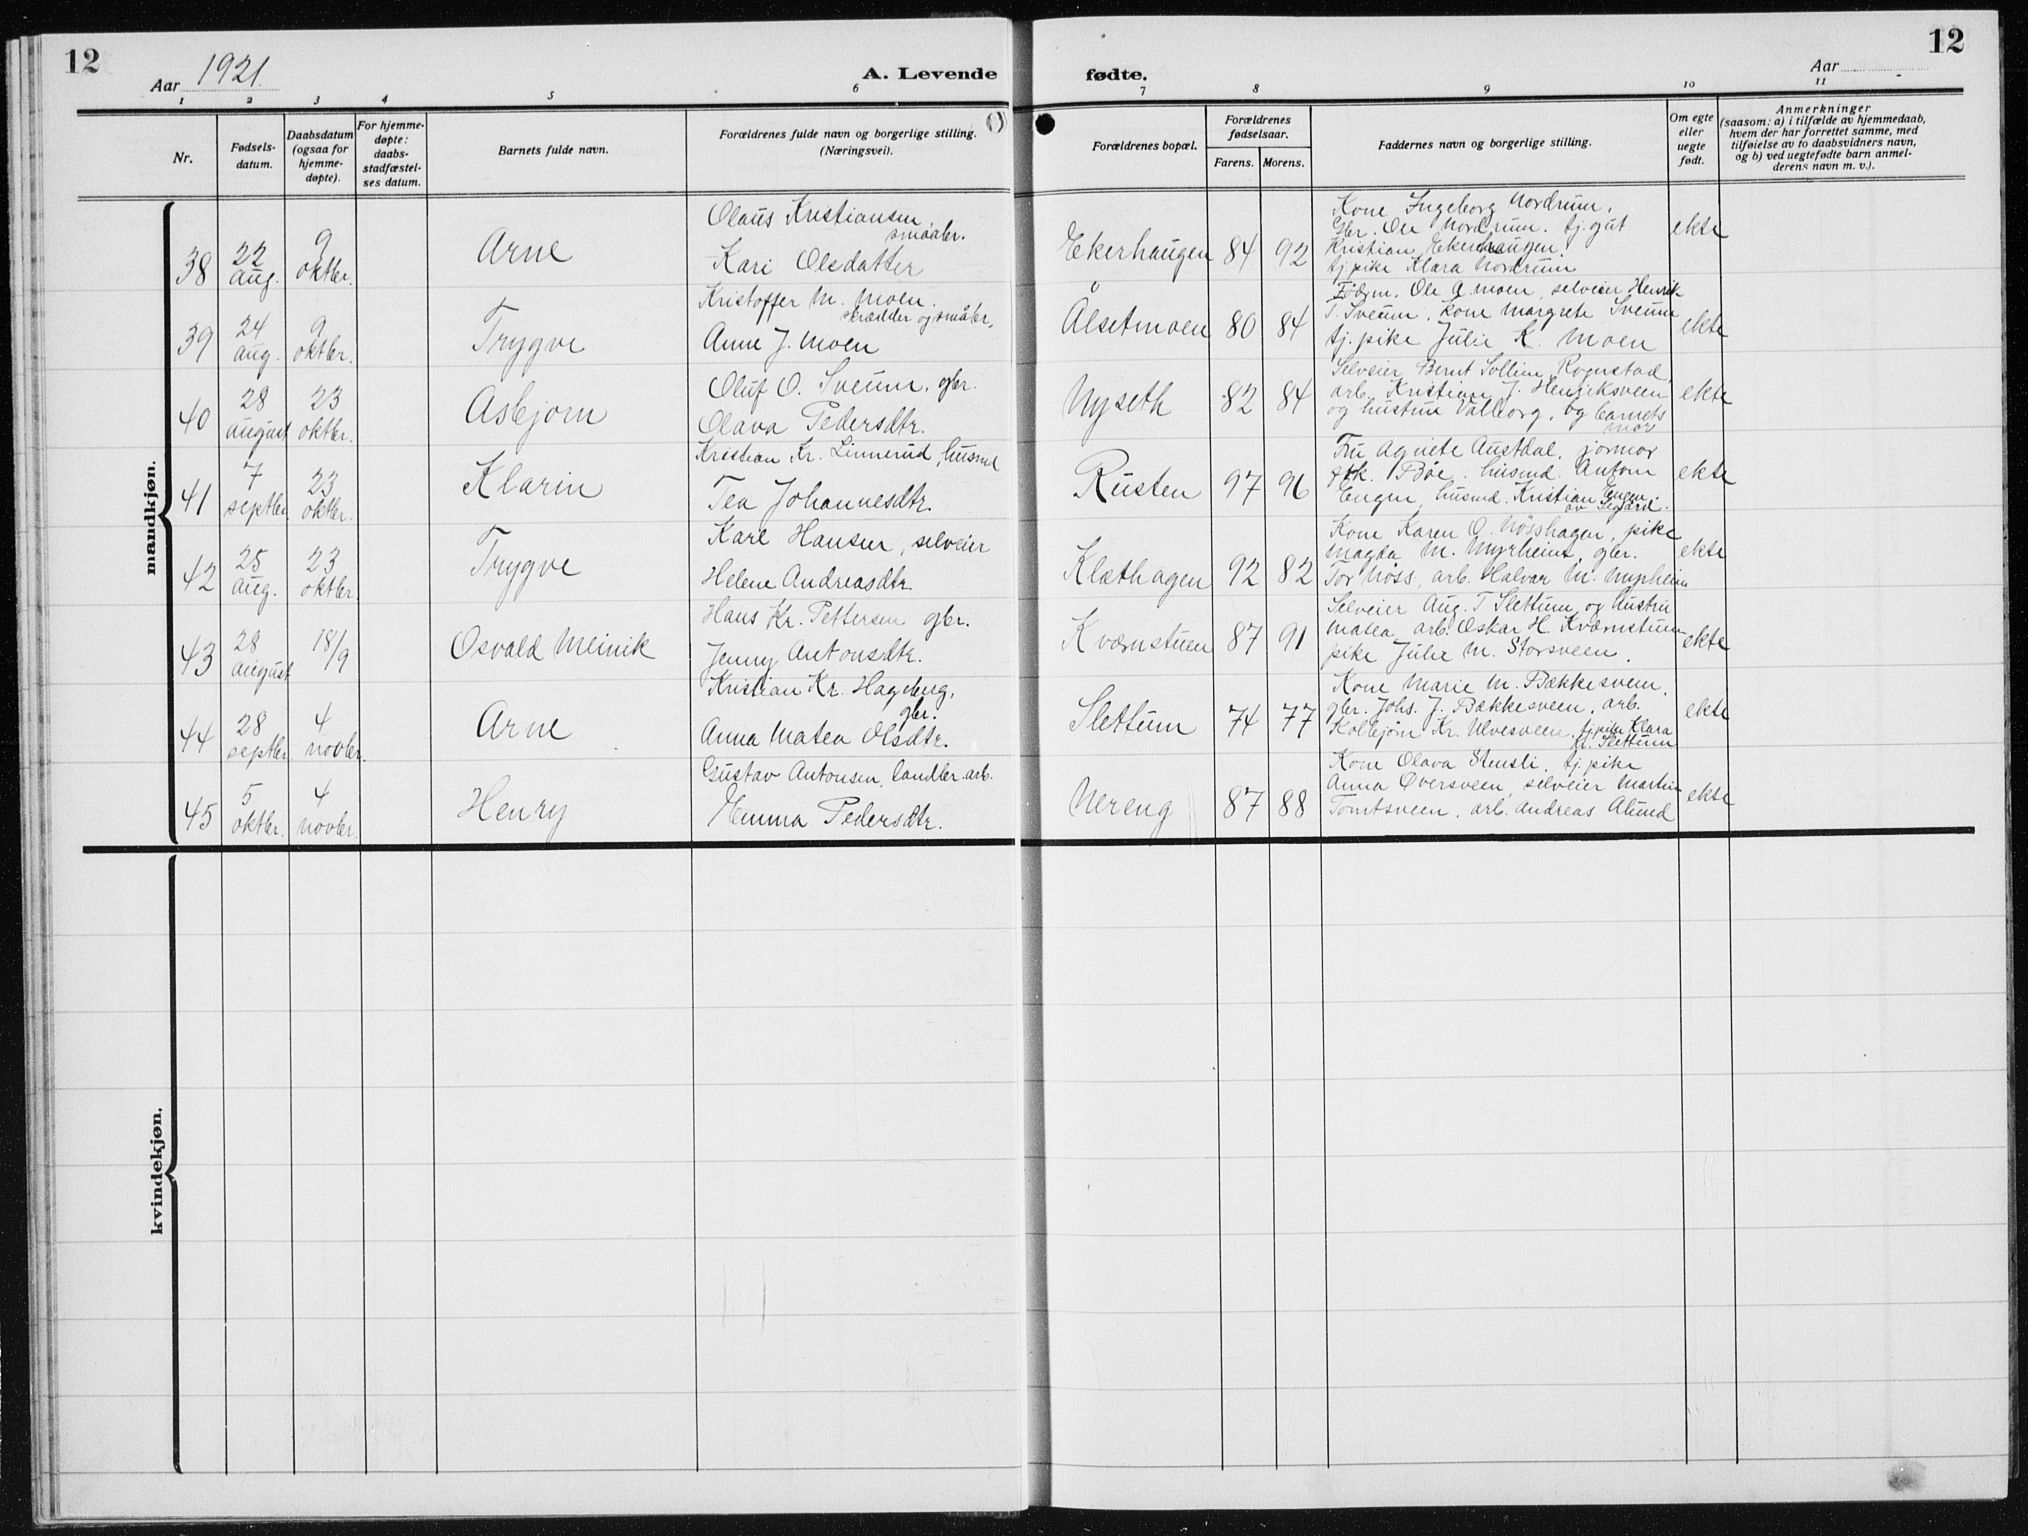 12
Aar 1921.
A. Levende fødte.
Aar
12
1 2 3 4 5 6 7 8 9 10 11
Nr.
Fødsels-
datum.
Daabsdatum
(ogsaa for
hjemme-
døpte).
For hjemme-
døpte:
daabs-
stadfæstel-
ses datum.
Barnets fulde navn.
Forældrenes fulde navn og borgerlige stilling.
(Næringsvei).
Forældrenes bopæl.
Forældrenes
fødselsaar.
Farens. Morens.
Faddernes navn og borgerlige stilling.
Om egte
eller
uegte
født.
Anmerkninger
(saasom: a) i tilfælde av hjemmedaab,
hvem der har forrettet samme, med
tilføielse av to daabsvidners navn,
og b) ved uegtefødte barn anmel-
derens navn m. v.).
mandkjøn.
38
22
aug.
9
oktbr.
Arne
Olaus Kristiansen,
småbr.
Kari Olsdatter
Ekerhaugen 84 92
Kone Ingeborg Nordrum,
gbr. Ole Nordrum. tj.gut
Kristian Ekerhaugen.
tj.pike Klara Nordrum
ekte
39
24
aug.
9
oktbr.
Trygve
Kristoffer M. Moen.
skrædder og småbr.
Anne J. Moen
Ålsetmoen 80 84
Fôdrm. Ole A. Moen, selveier Henrik
T. Sveum, kone Margrete Sveum
tj. pike Julie K. Moen
ekte
40
28
august
23
oktbr.
Asbjørn
Oluf O. Sveum, gbr.
Olava Pedersdtr.
Nyseth 82 84
Selveier Bernt Sollien Rognstad,
arb. Kristian J. Henriksveen
og hustru Valborg, og barnets
mor
ekte
41
7
septbr.
23
oktbr.
Klarin
Kristian Kr. Linnerud, husmd
Tea Johannesdtr.
Rusten 97 96
Fru Agnete Austdal, jormor
frk. Bøe, husmd. Anton
Engen, husmd. Kristian Engen.
ekte
42
25
aug.
23
oktbr.
Trygve
Karl Hansen, selveier
Helene Andreasdtr.
Klæthagen 92 82
Kone Karen O. Nösshagen, pike
Magda M. Myrheim, gbr.
Tor Nöss, arb. Halvar M. Myrheim
ekte
43
28
august
18/9
Osvald Meinik
Hans Kr. Pettersen gbr.
Jenny Antonsdtr.
Kværnstuen 87 91
Selveier Aug. T. Slettum og hustru
Matea, arb. Oskar H. Kværnstuen
pike Julie M. Storsveen.
ekte
44
28
septbr.
4
novbr.
Arne
Kristian Kr. Hageberg,
gbr.
Anna Matea Olsdtr.
Slettum 74 77
Kone Marie M. Bækkesveen,
gbr. Johs. J. Bækkesveen, arb.
Kolbjørn Kr. Ulvesveen, tj.pike Klara
Kr. Slettum
ekte
45
5
oktbr.
4
novbr.
Henry
Gustav Antonsen, landbr. arb.
Emma Pedersdtr.
Nereng 87 88
Kone Olava Stensli, tj. pike
Anna Øversveen, selveier Martin
Tomtsveen, arb. Andreas Alund
ekte
kvindekjøn.